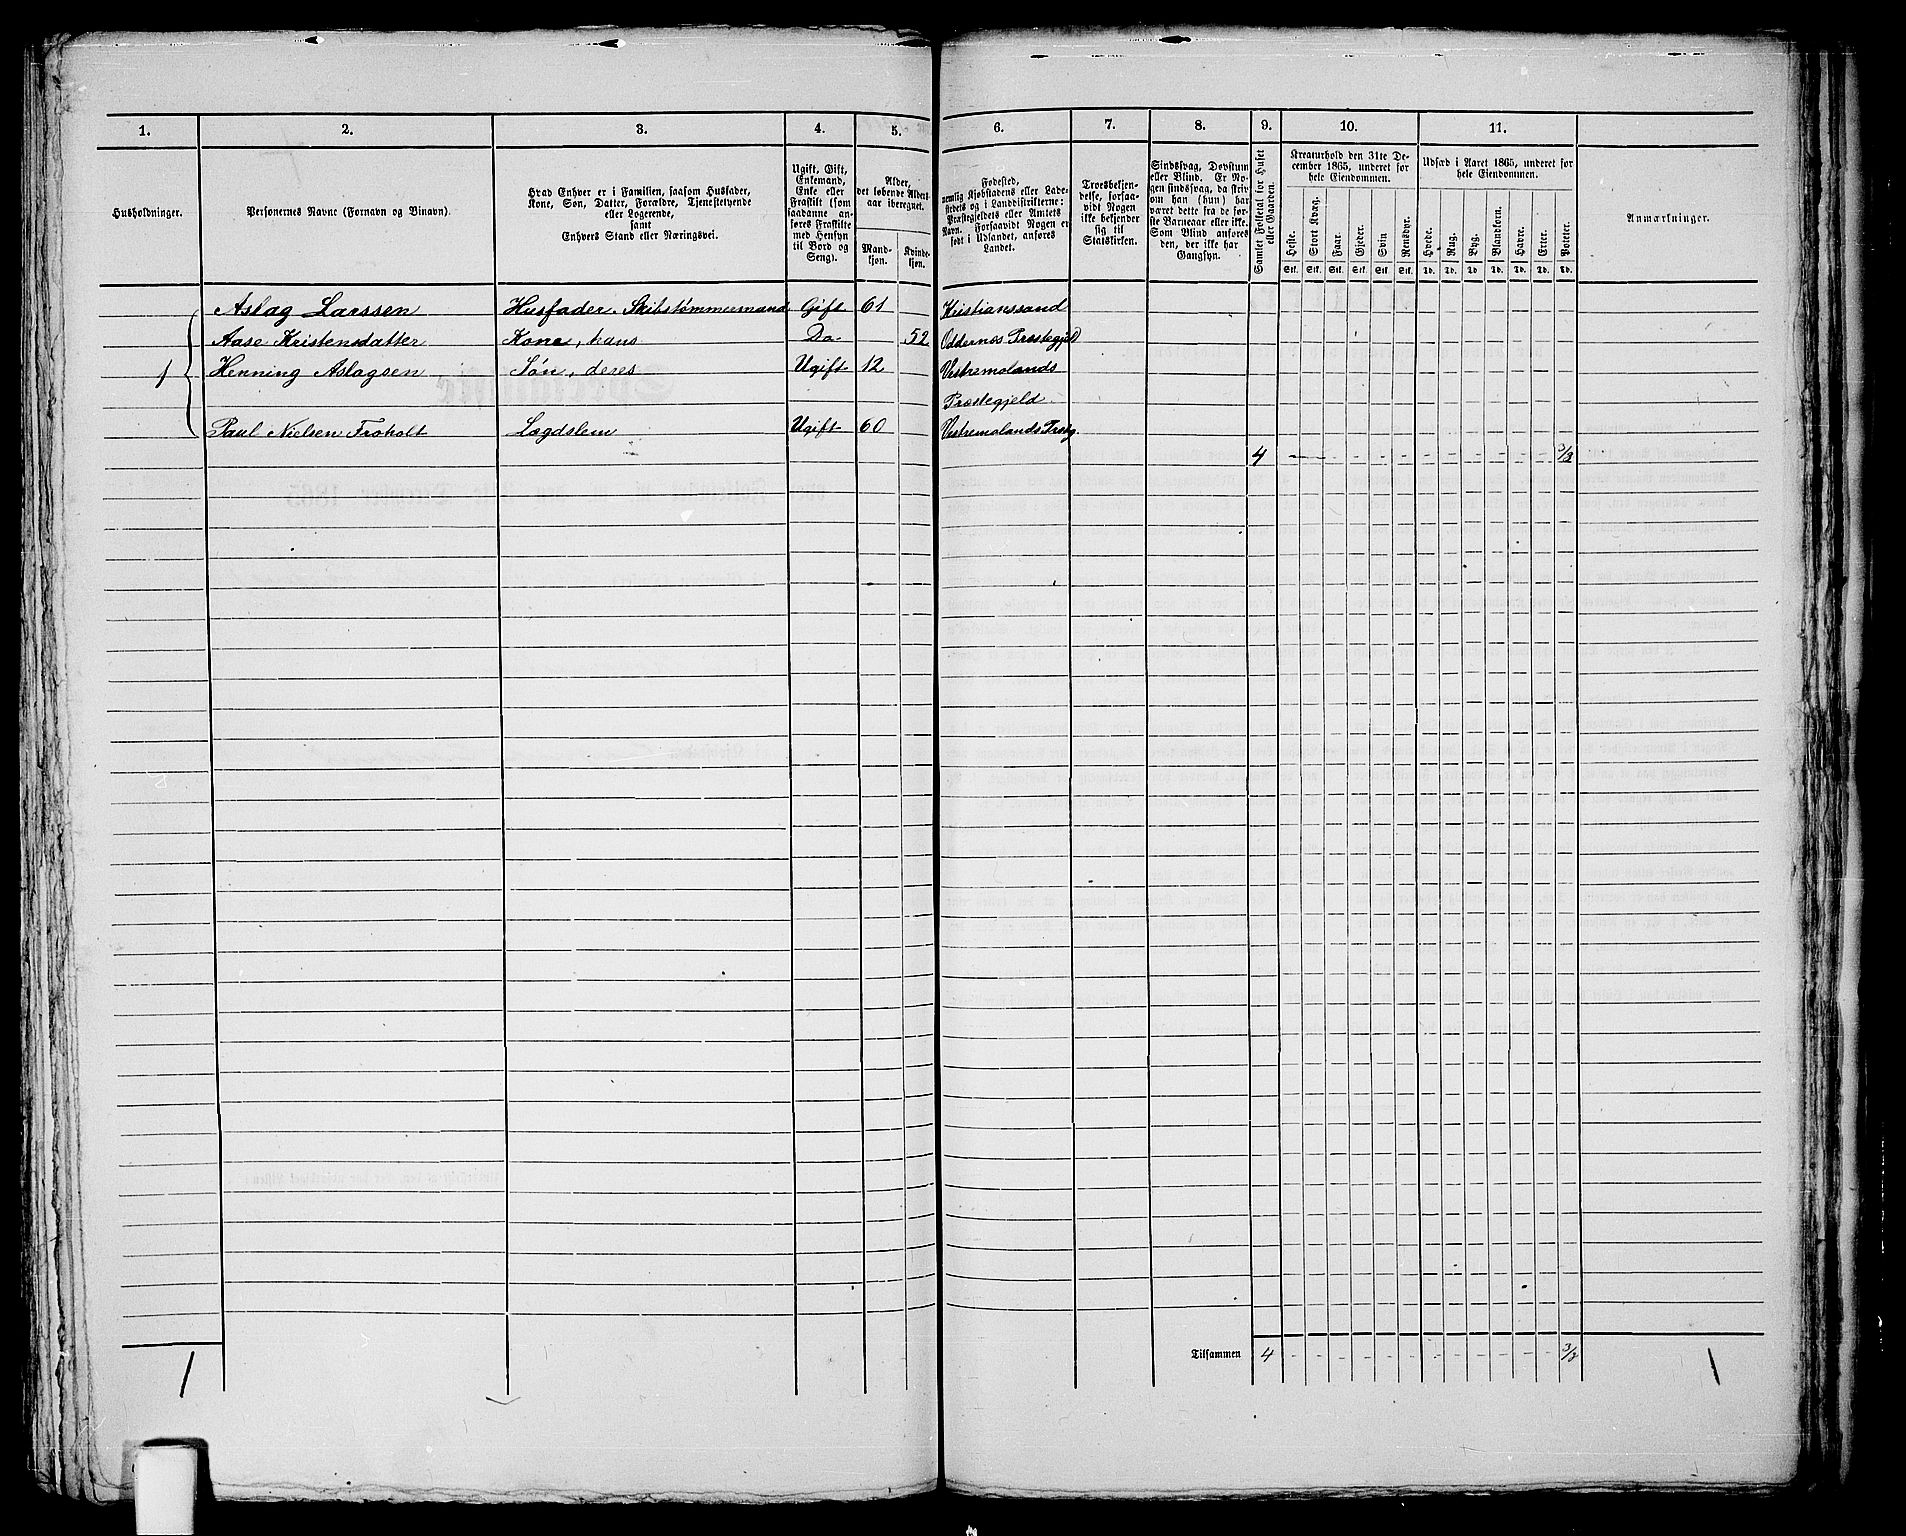 1. 2. 3. 4. 5. 6. 7. 8. 9. 10. 11.
Husholdninger.
Personernes Navne (Fornavn og Binavn).
Hvad Enhver er i Familien, saasom Husfader,
Kone, Søn, Datter, Forældre, Tjenestetyende
eller Logerende,
samt
Enhvers Stand eller Næringsvei.
Ugift, Gift,
Enkemand,
Enke eller
Fraskilt (som
saadanne an-
føres Fraskilte
med Hensyn
til Bord og
Seng).
Alder,
det løbende Alders-
aar iberegnet.
Mand-
kjøn.
Kvinde-
kjøn.
Fødested,
nemlig Kjøbstadens eller Lade-
stedets og i Landdistrikterne:
Præstegjeldets eller Amtets
Navn. Forsaavidt Nogen er
født i Udlandet, anføres
Landet.
Troesbekjen-
delse, forsaa-
vidt Nogen
ikke bekjender
sig til
Statskirken.
Sindssvag, Døvstum
eller Blind. Er No-
gen sindssvag, da skriv
om han (hun) har
været dette fra de før-
ste Barneaar eller ikke.
Som Blind anføres
den, der ikke har
Gangsyn.
Samlet Folketal for Huset
eller Gaarden.
Kreaturhold den 31te De-
cember 1865, underet for
hele Eiendommen.
Heste. Stort Kvæg. Faar. Gjeder. Svin Rensdyr.
Stk. Stk. Stk. Stk. Stk. Stk.
Udsæd i Aaret 1865, underet for
hele Eiendommen.
Hvede. Rug. Byg. Blandkorn. Havre. Erter. Poteter.
Td. Td. Td Td. Td. Td. Td.
Anmærkninger.
Aslag Larssen Husfader. Skibstømmermand Gift 61 Kristianssand
Aase Kristensdatter Kone, hans Do. 52 Oddernæs Præstegjeld
1 Henning Aslagsen Søn, deres Ugift 12 Vestremolands
Præstegjeld.
Paul Nielsen Froholt Lægdslem Ugift 60 Vestremolands Præstg.
4 - - - - - - - - - - - - 3/8
Tilsammen 4 - - - - - - - - - - - - 3/8